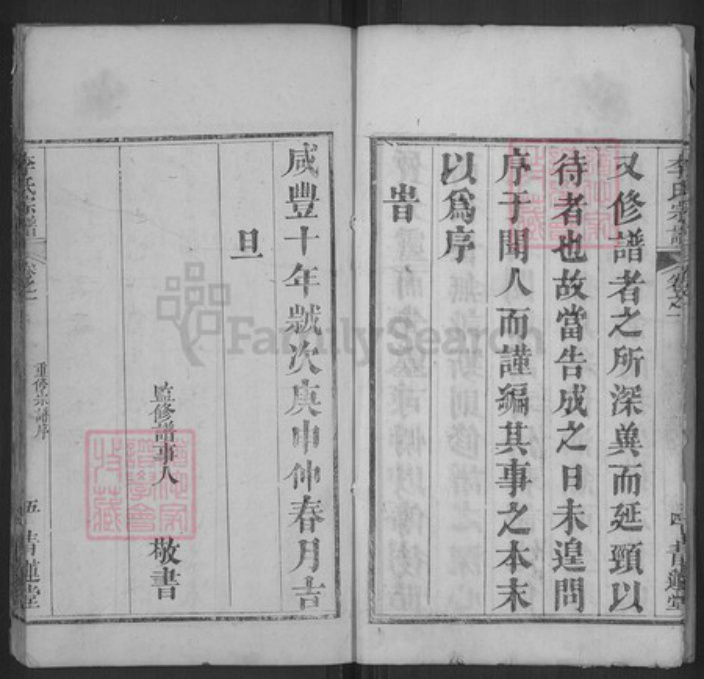 李氏宗譜
卷之一
四
青蓮堂
又修譜者之所深冀而延頸以
待者也故當告成之日未遑問
序于聞人而謹編其事之本末
以為序
旹
咸豐十年歲次庚申仲春月吉
旦
監修譜事人
敬書
李氏宗譜
卷之一
重修宗譜序
五
青蓮堂
FamilySearch